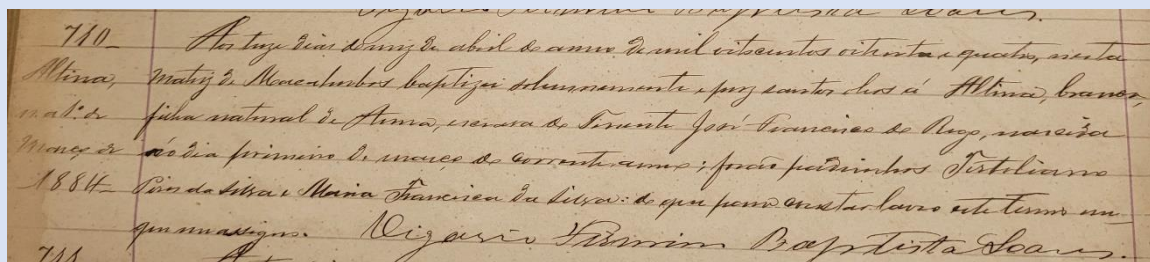 Vigario Firmino Baptista Soares.
710_ Aos treze dias do mez de abril do anno de mil oitocentos oitenta e quatro, nesta
Altina, Matriz de Macahubas baptizei solemnemente e puz santos oleos á Altina, branca,
nat. de filha natural de Anna, escrava do Tenente José Francisco do Rego, nascida
Março de no dia primeiro de março do corrente anno; forão padrinhos Tertiliano
1884_ Pires da Silva e Maria Francisca da Silva: do que para constar lavro este termo em
que me assigno. Vigario Firmino Baptista Soares.
711